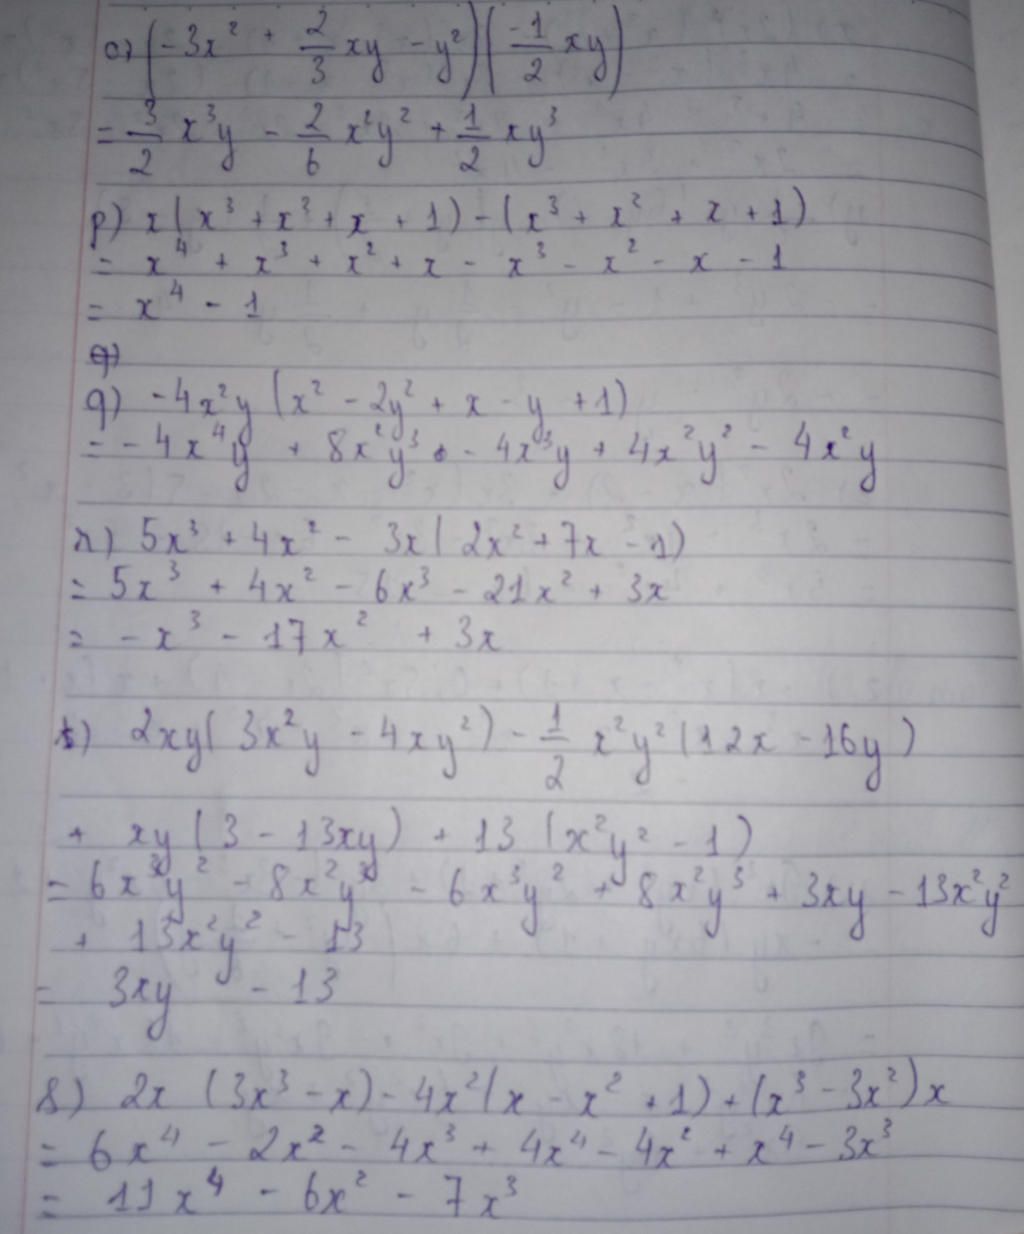 o) (-3x² + 2/3 xy - y²)(-1/2 xy)
= 3/2 x³y - 2/6 x²y² + 1/2 xy³
p) x(x³ + x² + x + 1) - (x³ + x² + x + 1)
= x⁴ + x³ + x² + x - x³ - x² - x - 1
= x⁴ - 1
q)
q) -4x²y (x² - 2y² + x - y + 1)
= -4x⁴y + 8x²y³ - 4x³y + 4x²y² - 4x²y
r) 5x³ + 4x² - 3x(2x² + 7x - 1)
= 5x³ + 4x² - 6x³ - 21x² + 3x
= -x³ - 17x² + 3x
t) 2xy(3x²y - 4xy²) - 1/2 x²y²(12x - 16y)
+ xy(3 - 13xy) + 13(x²y² - 1)
= 6x³y² - 8x²y³ - 6x³y² + 8x²y³ + 3xy - 13x²y²
+ 13x²y² - 13
= 3xy - 13
s) 2x (3x³ - x) - 4x²(x - x² + 1) + (x³ - 3x²)x
= 6x⁴ - 2x² - 4x³ + 4x⁴ - 4x² + x⁴ - 3x³
= 11x⁴ - 6x² - 7x³